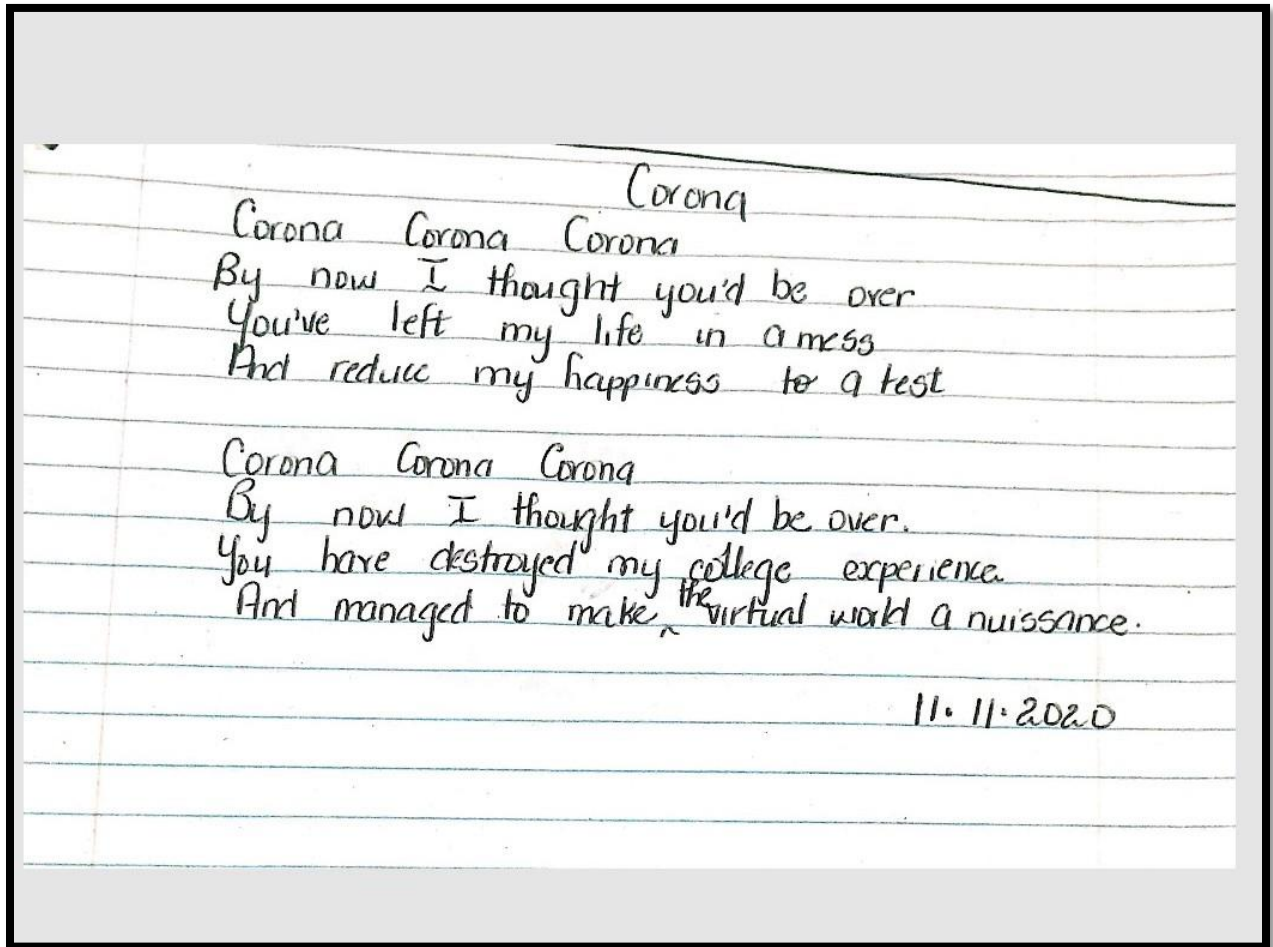 Corona
Corona Corona Corona
By now I thought you'd be over
You've left my life in a mess
And reduce my happiness to a test
Corona Corona Corona
By now I thought you'd be over.
You have destroyed my college experience
And managed to make the virtual world a nuissance.
11.11.2020